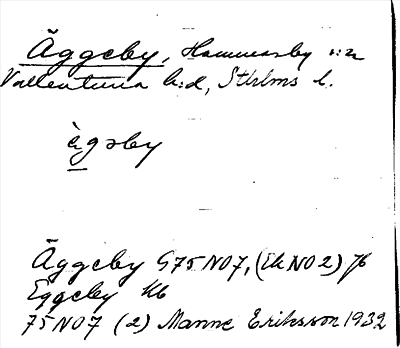 Äggeby, Hammarby s:n
Vallentuna h:d, Sthlms l.
ägəby
Äggeby G75NO7, (Ek NO2) Jb
Eggeby Kb
75NO7 (2) Manne Eriksson 1932